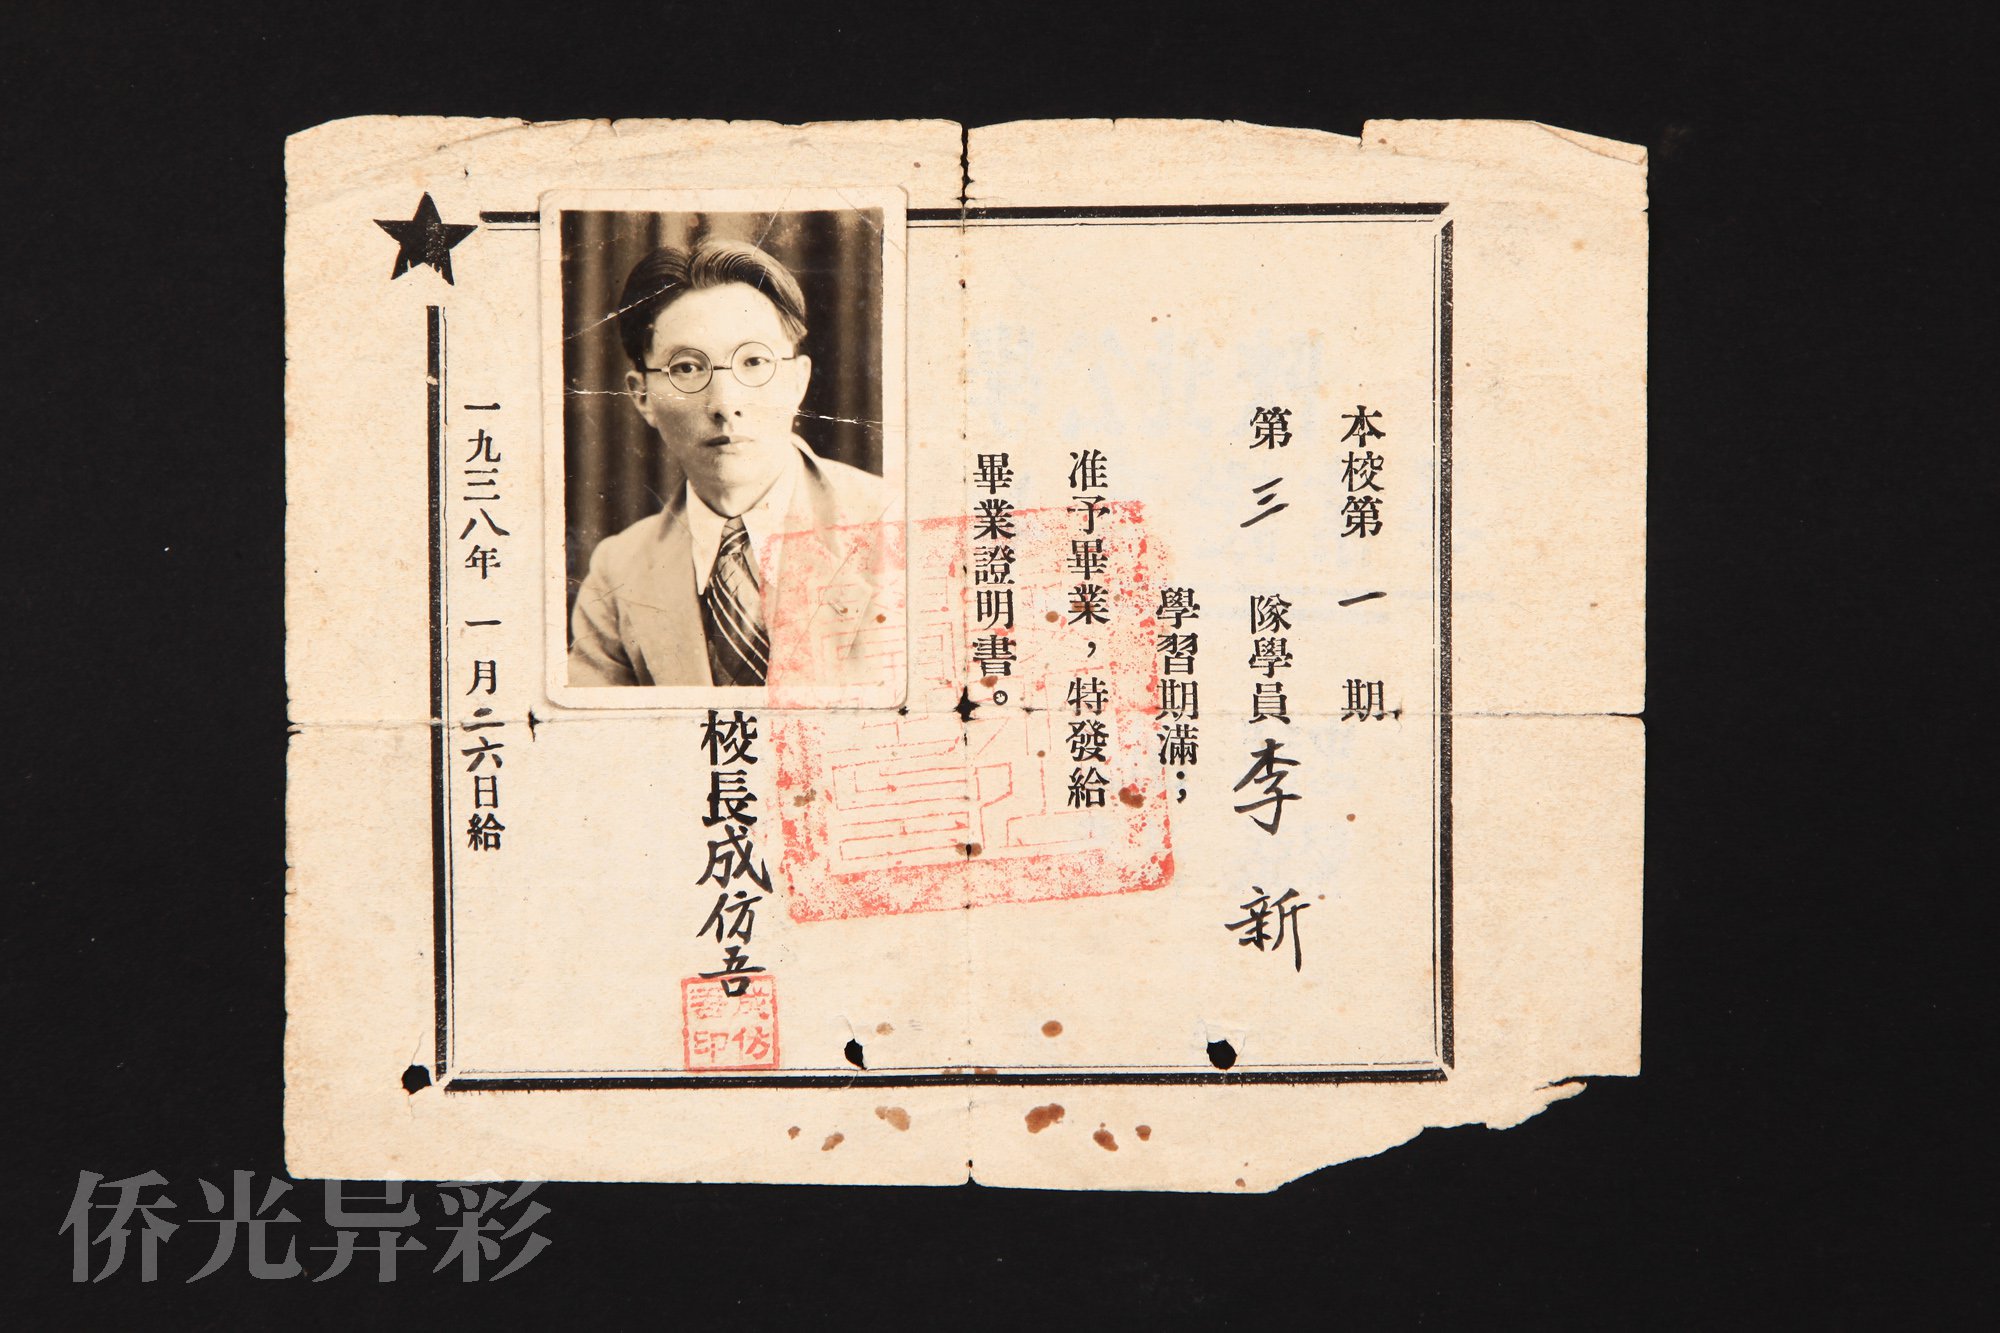 本校第一期
第三隊學員李新
學習期滿；
准予畢業，特發給
畢業證明書。
校長成仿吾
成仿
吾印
一九三八年一月二六日給
侨光异彩